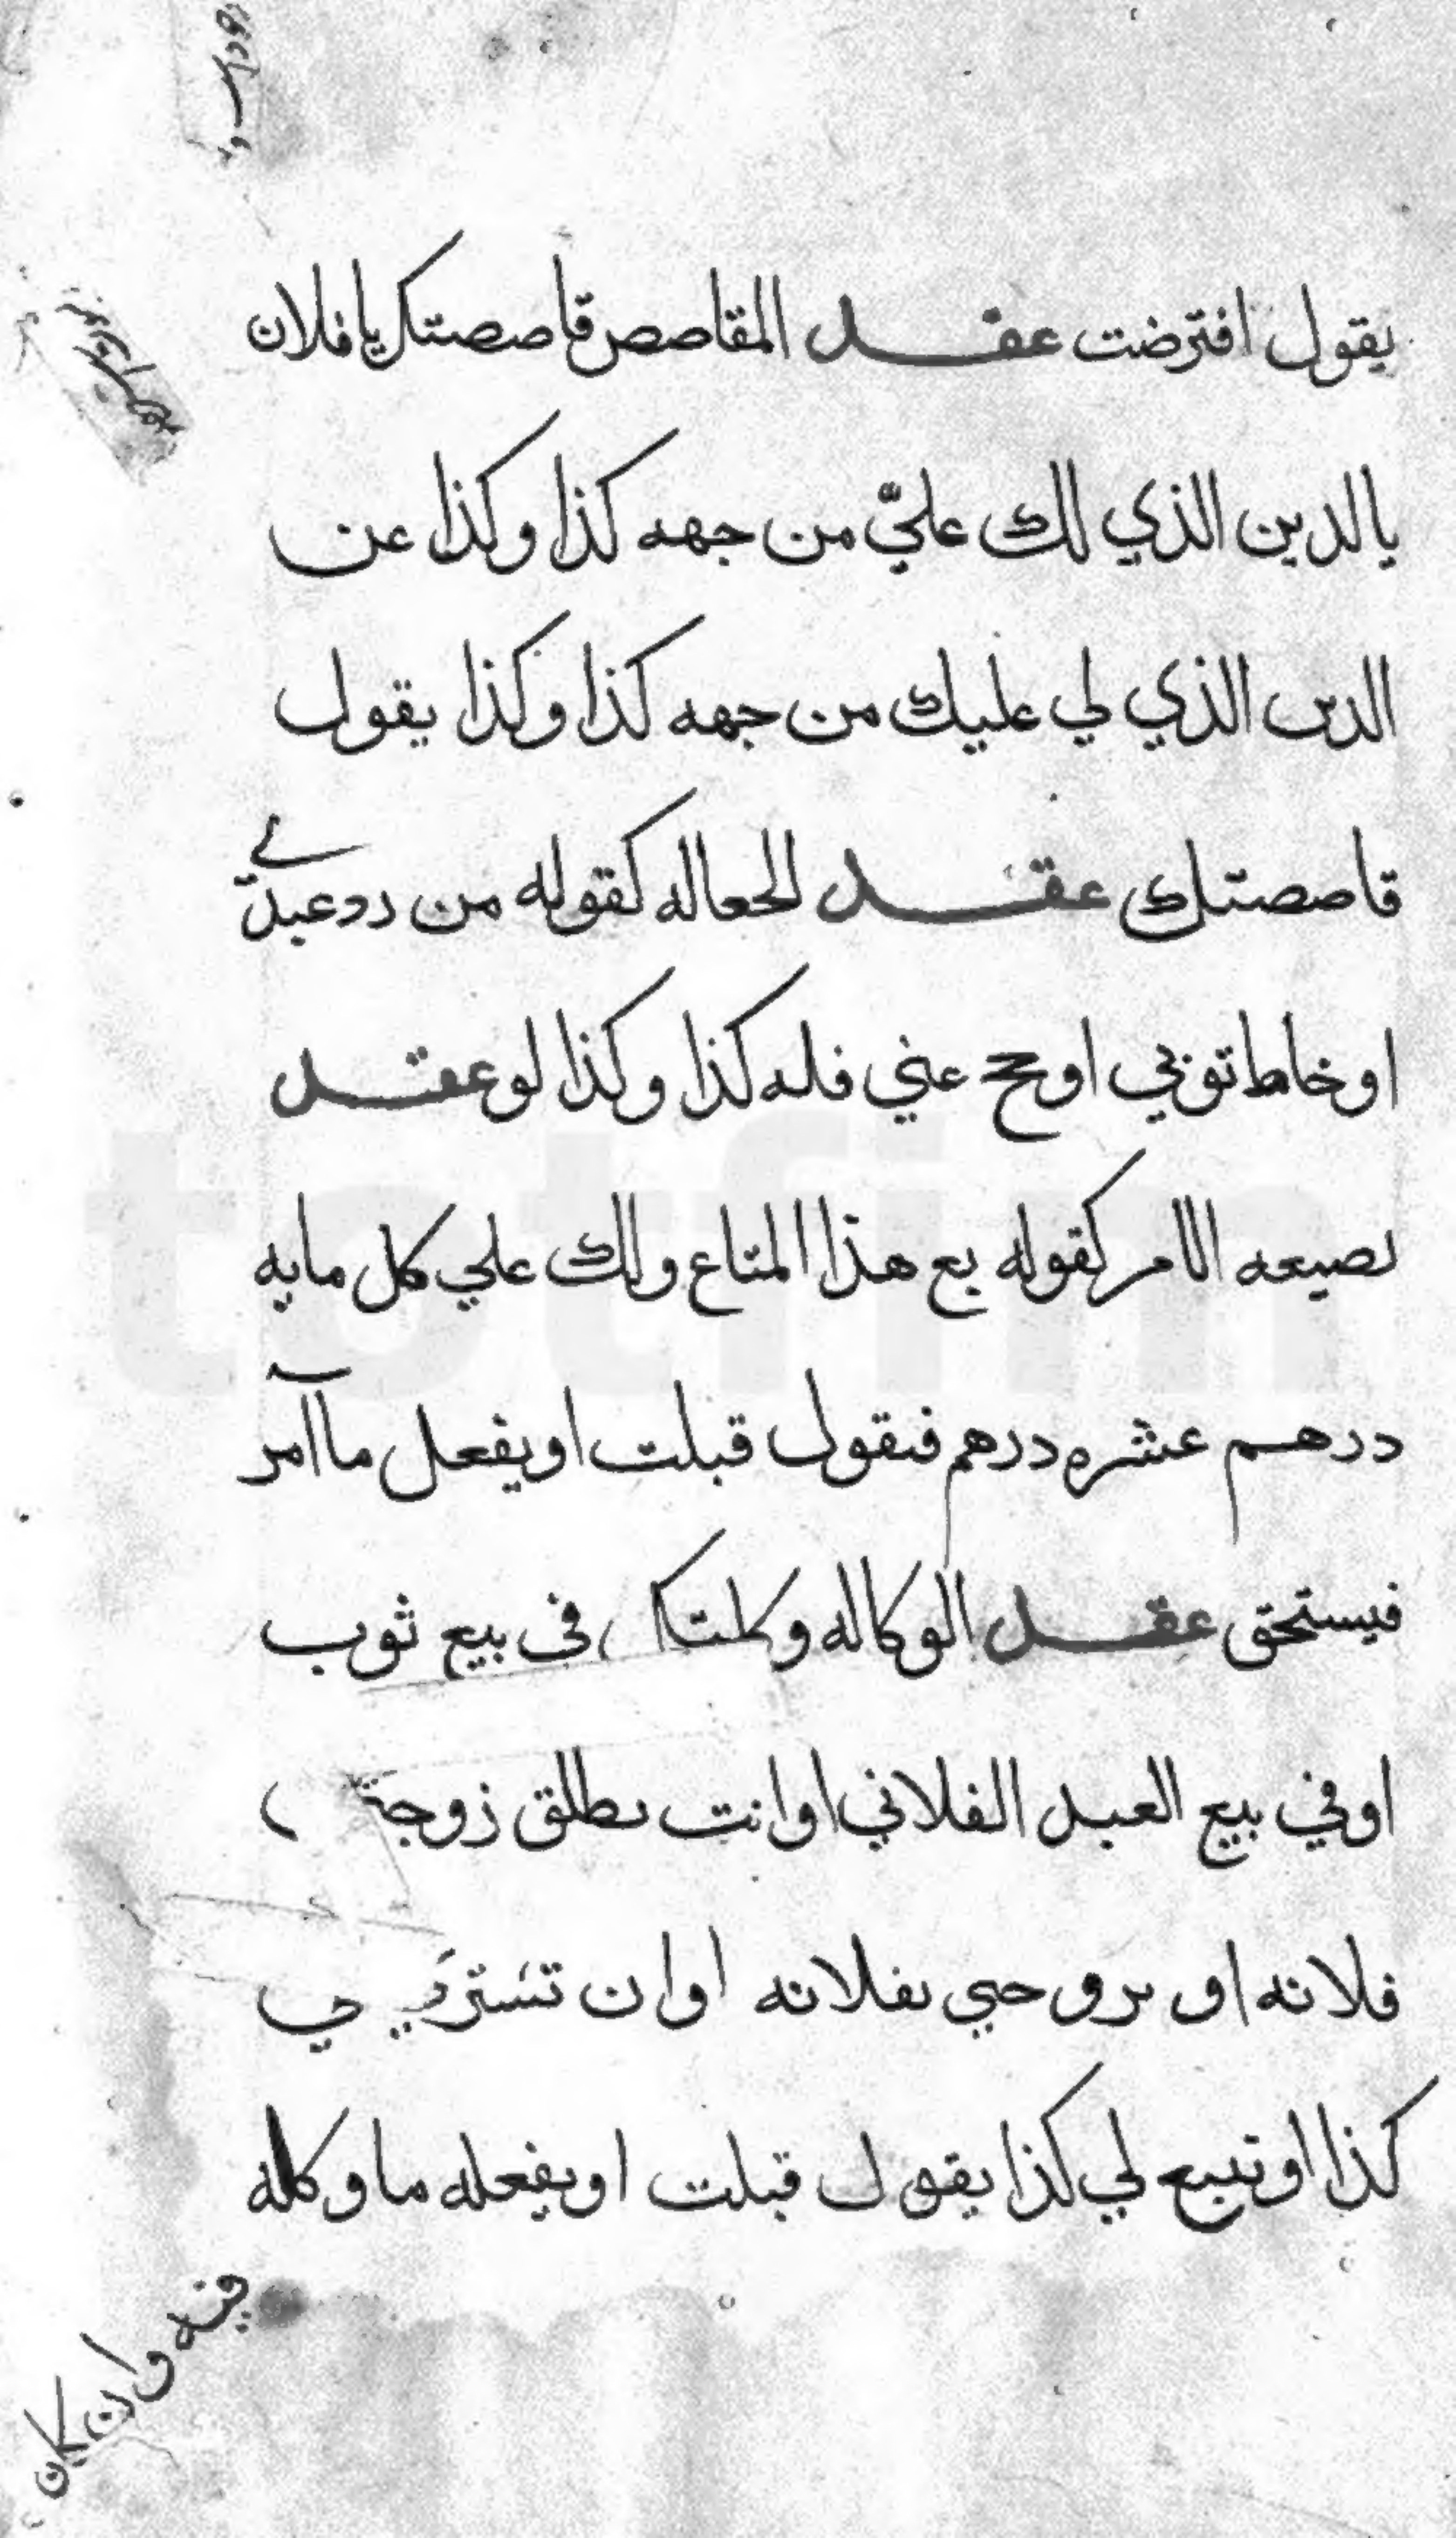 يقول افترضت عقد المقاصص قاصصتك يا فلان
بالدين الذي لك عليّ من جهه كذا وكذا عن
الدين الذي لي عليك من جهه كذا وكذا يقول
قاصصتك عقد الجعاله كقوله من رد عبدي
او خاط ثوبي او حج عني فله كذا وكذا لو عقد
بصيغه الامر كقوله بع هذا المتاع ولك علي كل مايه
درهم عشره درهم فىقول قبلت او يفعل ما آمر
فيستحق عقد الوكاله وكلتك في بيع ثوب
او في بيع العبد الفلاني او انت ىطلق زوجة
فلانه او ىروحىي ىفلانه او ان تشتري
كذا او تبيع لي كذا يقول قبلت او يفعله ما وكله
فيه وان كان
totfim